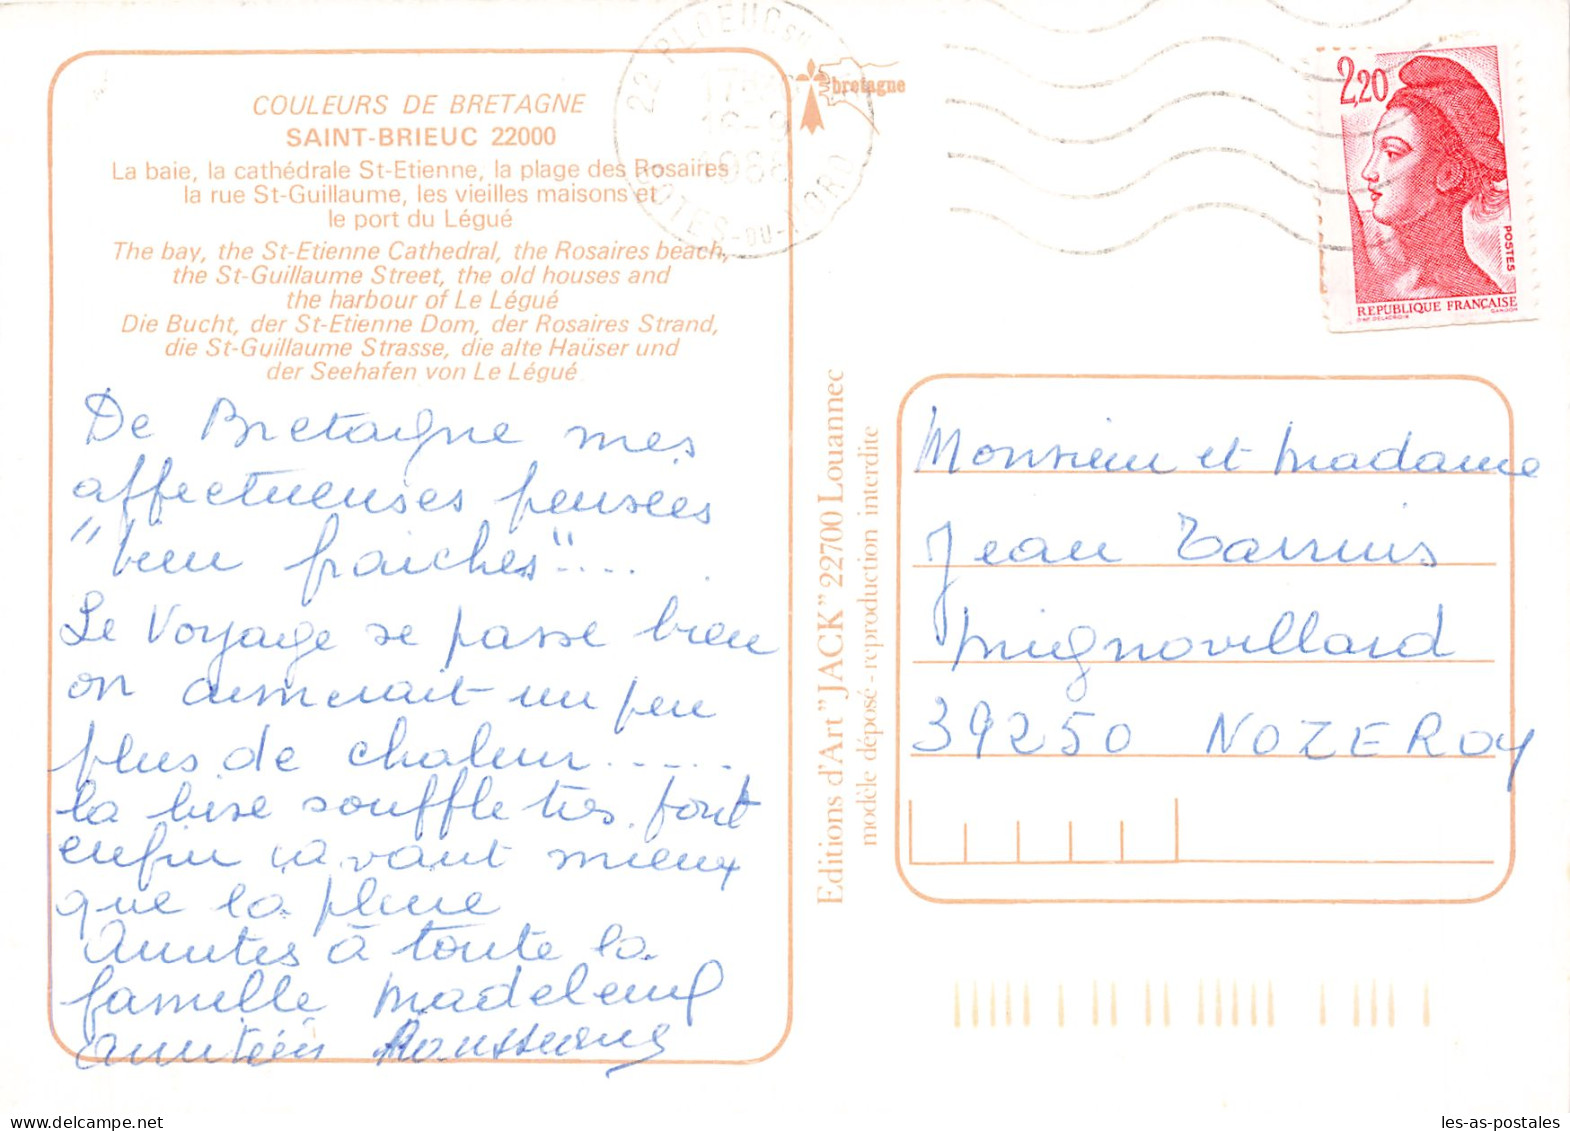 COULEURS DE BRETAGNE
SAINT-BRIEUC 22000
La baie, la cathédrale St-Etienne, la plage des Rosaires
la rue St-Guillaume, les vieilles maisons et
le port du Légué
The bay, the St-Etienne Cathedral, the Rosaires beach,
the St-Guillaume Street, the old houses and
the harbour of Le Légué
Die Bucht, der St-Etienne Dom, der Rosaires Strand,
die St-Guillaume Strasse, die alte Haüser und
der Seehafen von Le Légué
De Bretagne mes
affectueuses pensées
"bien fraiches"....
Le Voyage se passe bien
on aimerait un peu
plus de chaleur.....
la bise souffle très fort
enfin ça vaut mieux
que la pluie
Amitiés à toute la
famille Madeleine
22 PLOEUC SUR
1988
COTES-DU-NORD
bretagne
2,20
POSTES
REPUBLIQUE FRANÇAISE
D'AP. DELACROIX GANDON
Editions d'Art "JACK" 22700 Louannec
modèle déposé - reproduction interdite
Monsieur et Madame
Jean
Mignovillard
39250 NOZEROY
les-as-postales